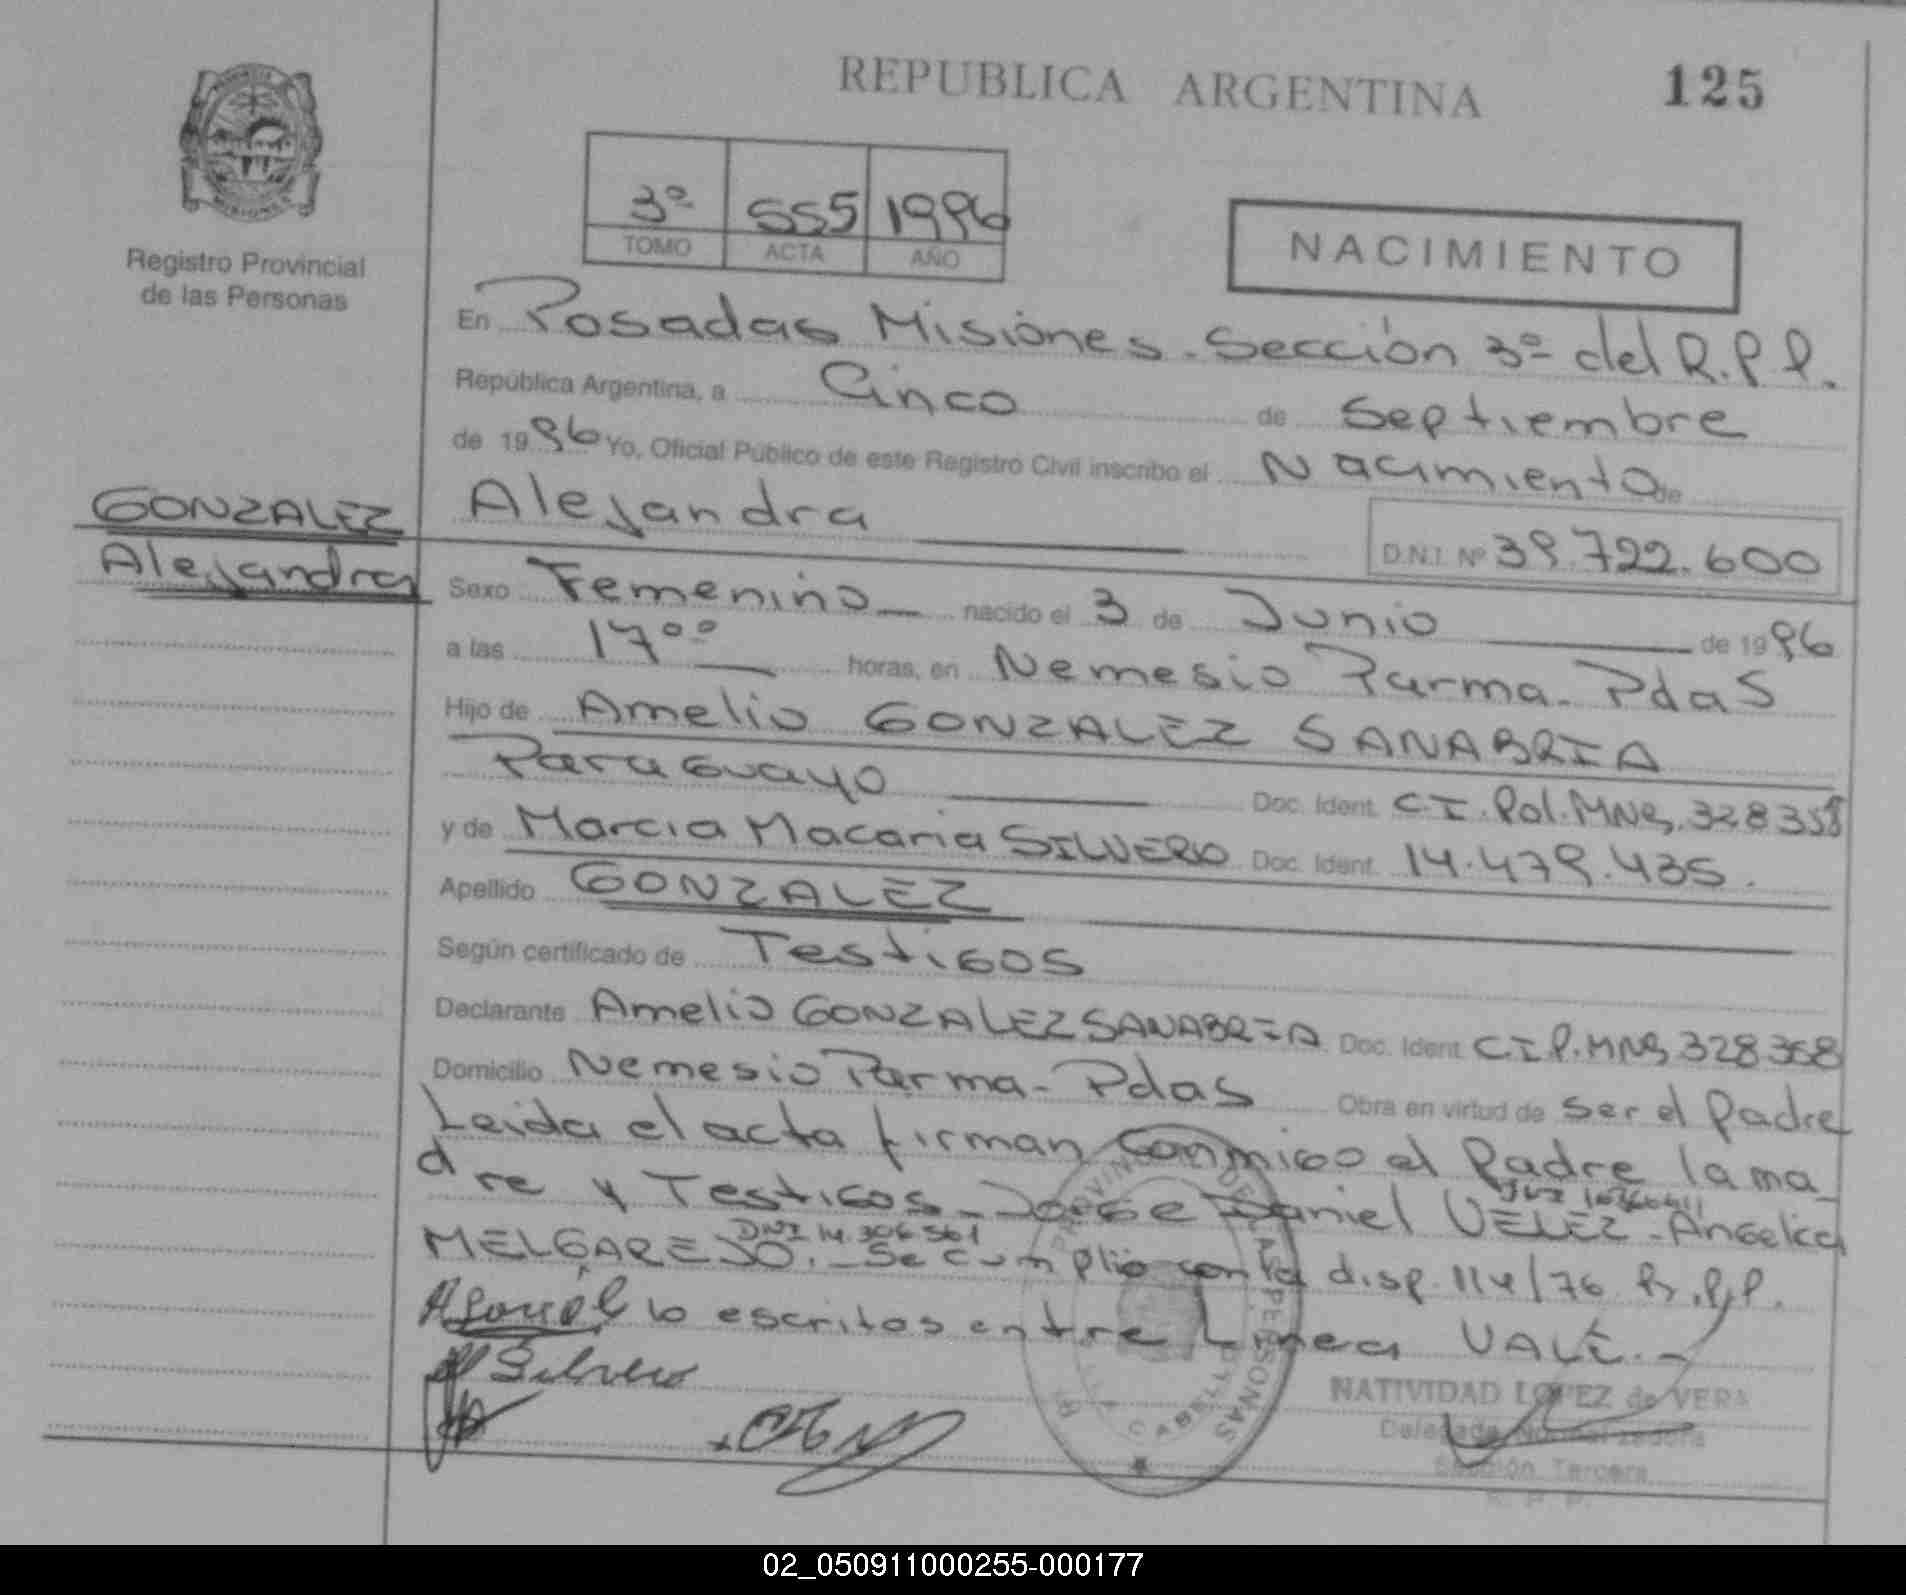 REPUBLICA ARGENTINA
125
Registro Provincial
de las Personas
3º 555 1996
TOMO ACTA AÑO
NACIMIENTO
En Posadas Misiones. Sección 3º del R.P.P.
República Argentina, a Cinco de Septiembre
de 1996 Yo, Oficial Público de este Registro Civil inscribo el Nacimiento de
GONZALEZ
Alejandra
Alejandra
D.N.I. Nº 39.722.600
Sexo Femenino nacido el 3 de Junio de 1996
a las 17⁰⁰ horas, en Nemesio Parma - Pdas
Hijo de Amelio GONZALEZ SANABRIA
Paraguayo Doc. Ident. C.I. Pol. MNS,
y de Marcia Macaria SILVERO Doc. Ident. 14.479.435.
Apellido GONZALEZ
Según certificado de Testigos
Declarante Amelio GONZALEZ SANABRIA Doc. Ident. C.I.P. MNS 328368
Domicilio Nemesio Parma - Pdas Obra en virtud de ser el Padre
Leida el acta firman conmigo el Padre la ma
dre y Testigos - Jorge Daniel VELEZ - Angelica
MELGAREJO. DNI 14.306.561 - Se cumplio con la disp. 114/76 R.P.P.
lo escritos entre Linea VALE.-
Silvero
PROVINCIAL DE LAS PERSONAS
NATIVIDAD LOPEZ de VERA
Delegada Normalizadora
Sección Tercera
R. P. P.
02_050911000255-000177